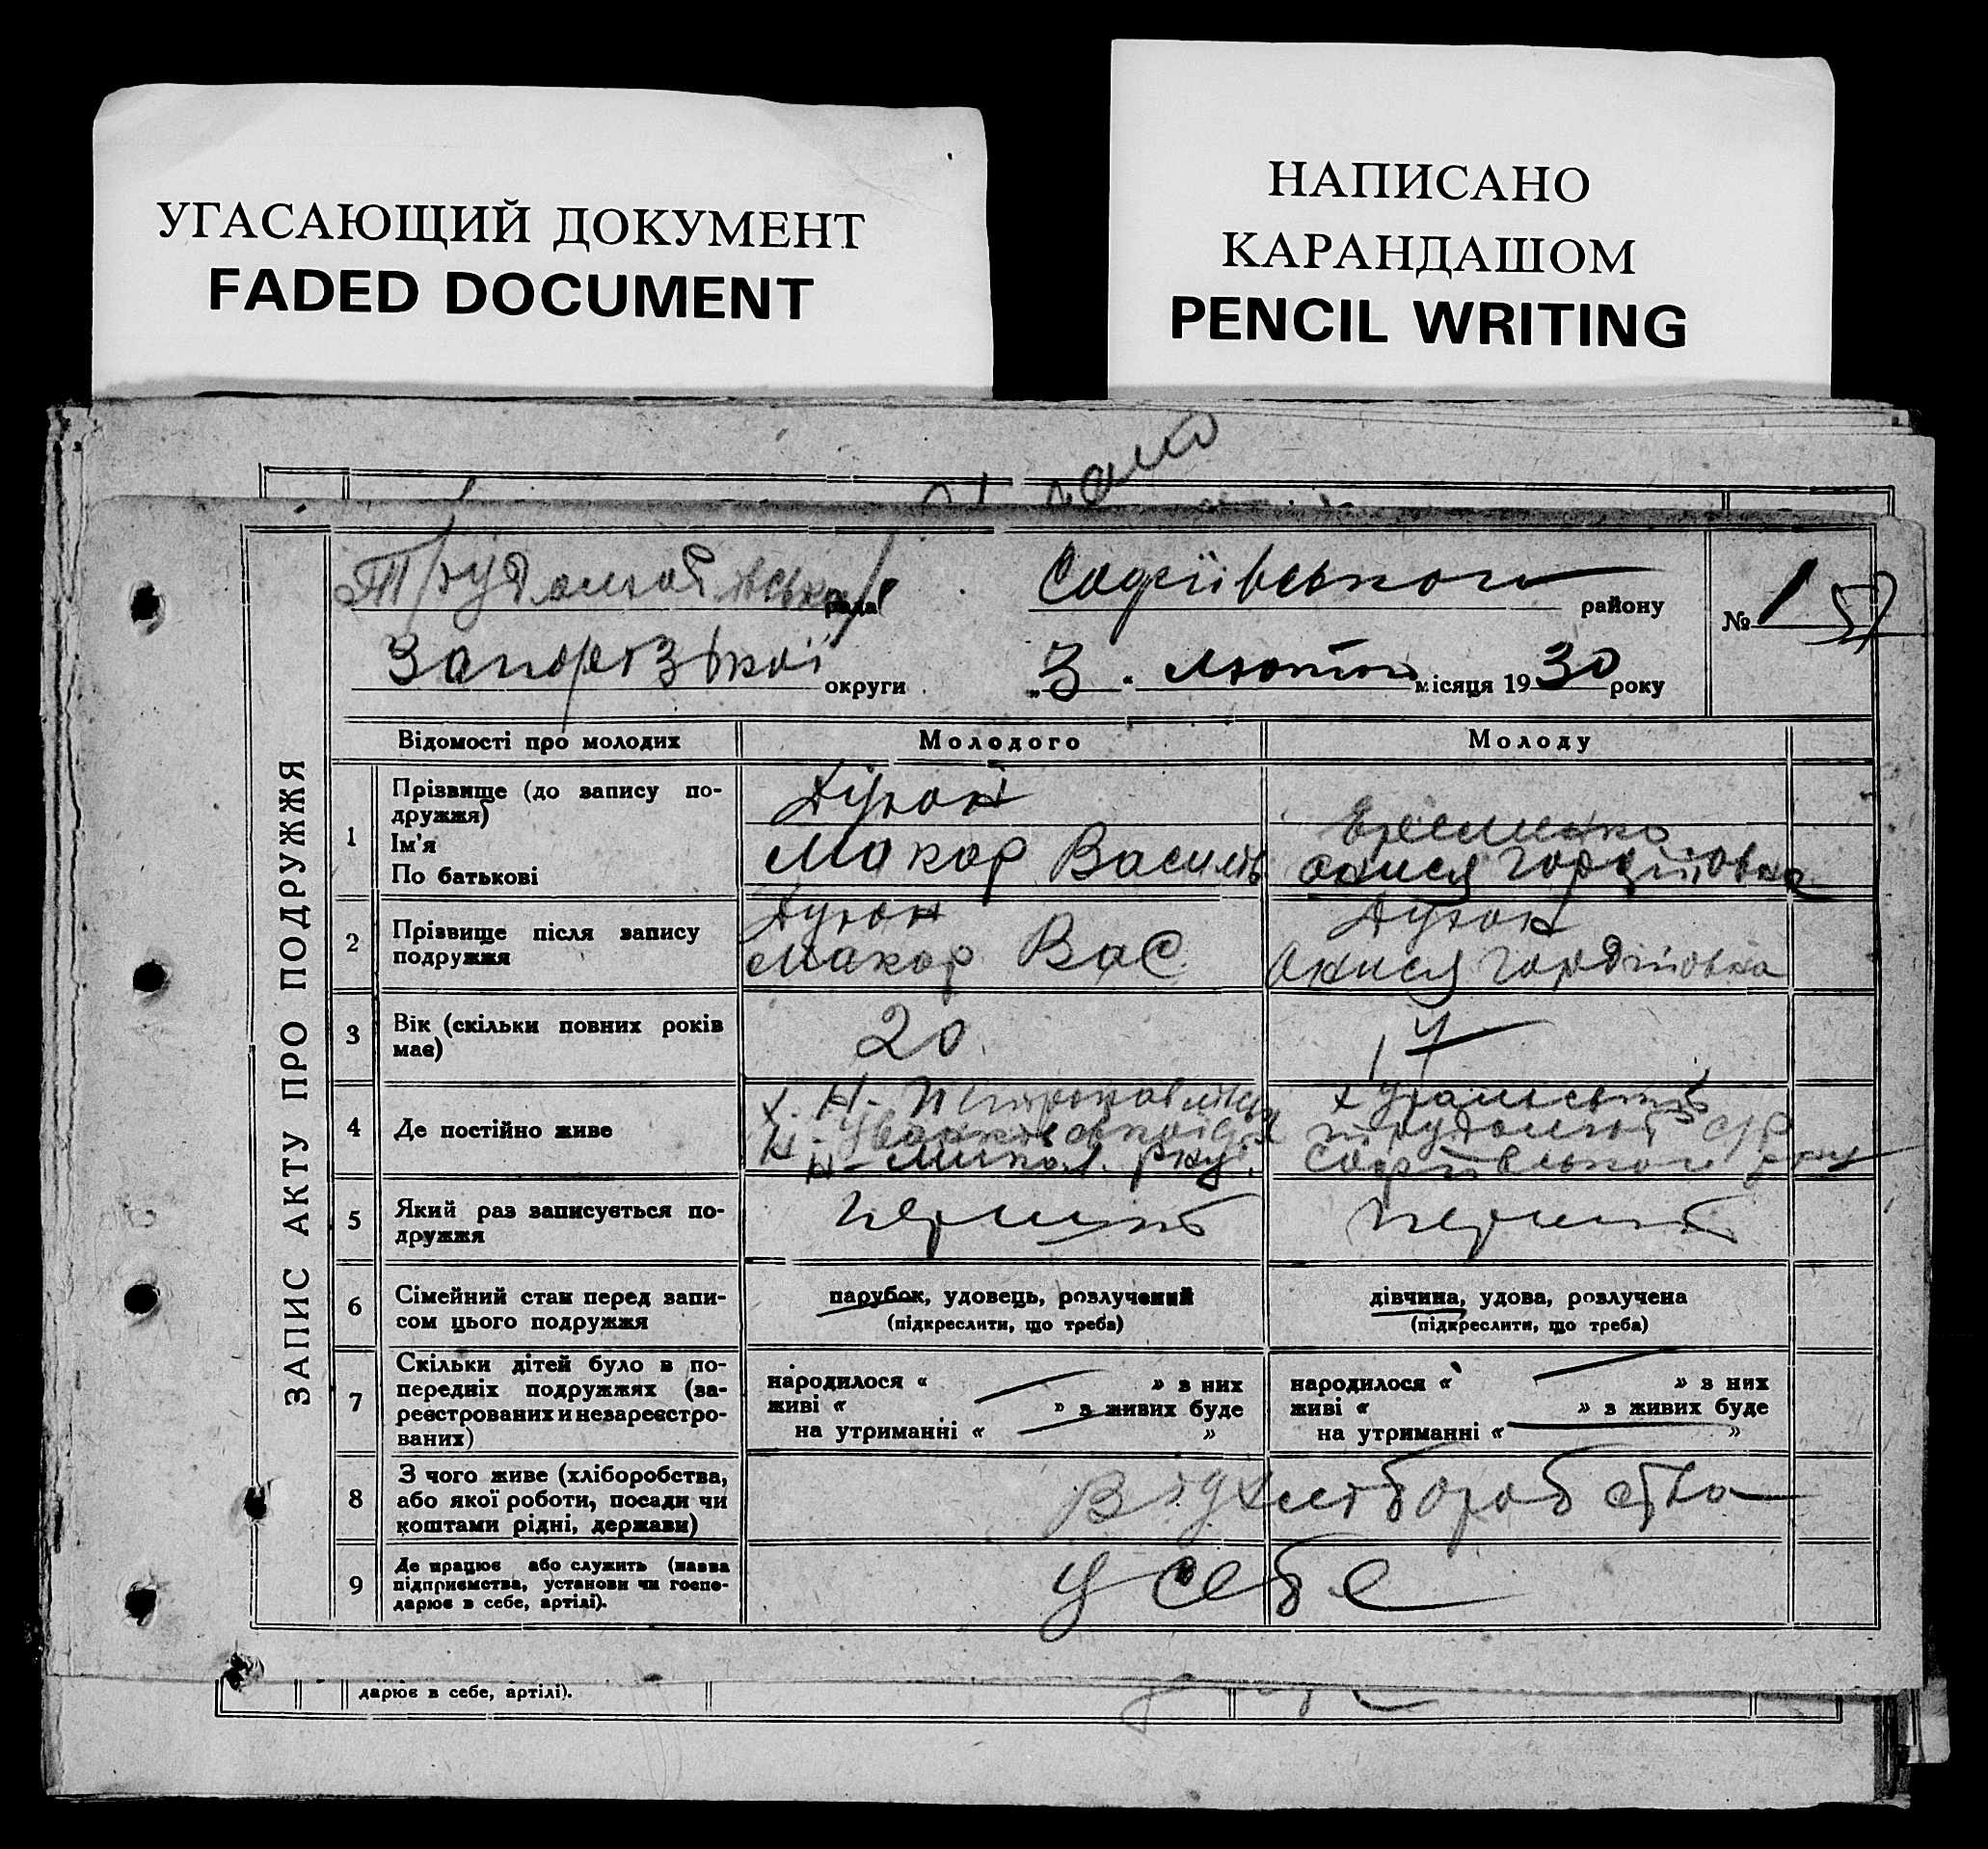 УГАСАЮЩИЙ ДОКУМЕНТ
FADED DOCUMENT
НАПИСАНО
КАРАНДАШОМ
PENCIL WRITING
ЗАПИС АКТУ ПРО ПОДРУЖЖЯ
рада Софіївського району № 1
Запорізької округи „3“ лютого місяця 1930 року
Відомості про молодих Молодого Молоду
1 Прізвище (до запису по-
дружжя)
Ім'я
По батькові
Макар Василів
Гордіївна
2 Прізвище після запису
подружжя
Макар Вас
Гордіївна
3 Вік (скільки повних років
має)
20
17
4 Де постійно живе
Х. Н-
Н-Микол. р-ну.
Софіївського р-ну
5 Який раз записується по-
дружжя
перший
перший
6 Сімейний стан перед запи-
сом цього подружжя
парубок, удовець, розлучений
(підкреслити, що треба)
дівчина, удова, розлучена
(підкреслити, що треба)
7 Скільки дітей було в по-
передніх подружжях (за-
реєстрованих и незареєстро-
ваних)
народилося « » з них
живі « » з живих буде
на утриманні « »
народилося « » з них
живі « » з живих буде
на утриманні « »
8 З чого живе (хліборобства,
або якої роботи, посади чи
коштами рідні, держави)
Від хліборобства
9 Де працює або служить (назва
підприємства, установи чи госпо-
дарює в себе, артілі).
У себе
дарює в себе, артілі).